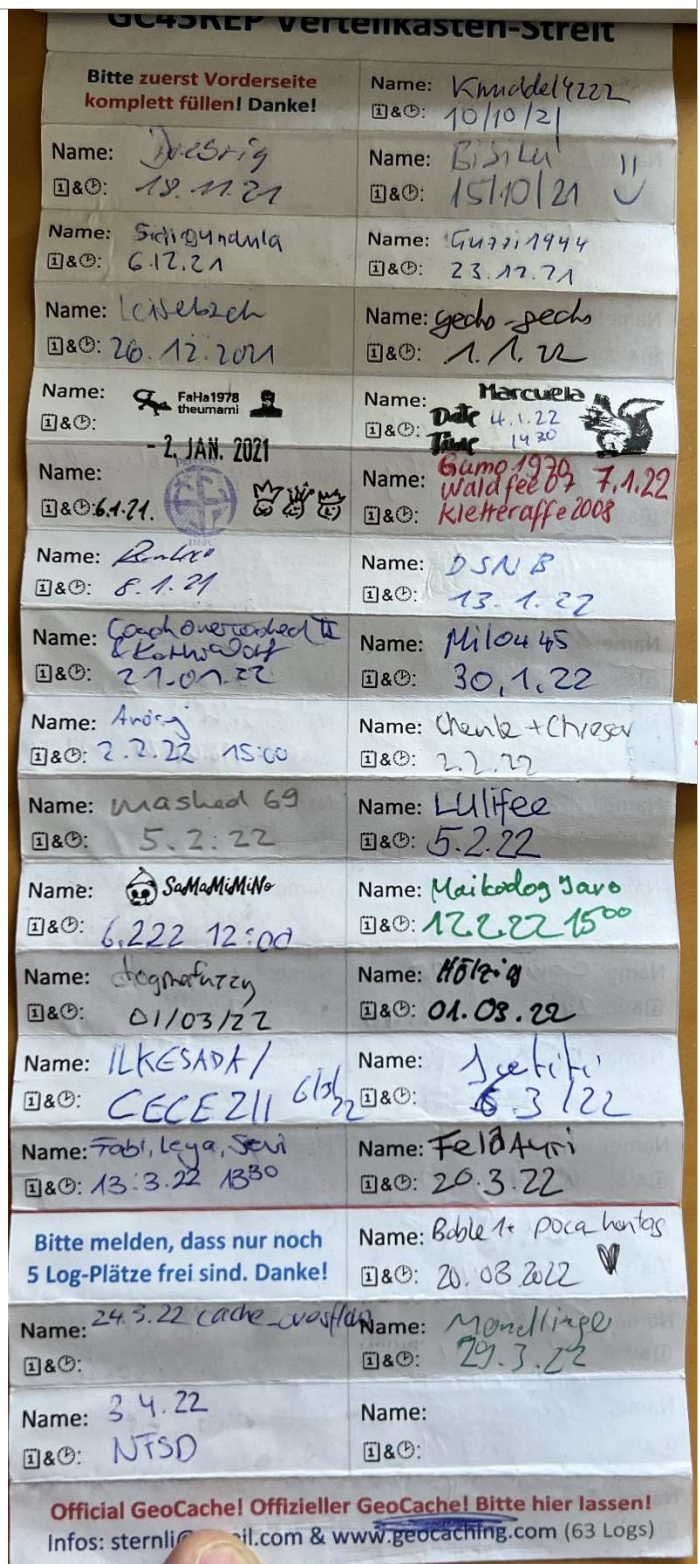 GC45REP Verteilkasten-Streit
Bitte zuerst Vorderseite
komplett füllen! Danke!
Name: Knuddel4222
&: 10/10/21
Name:
&: 18.11.21
Name: BiSiLu
&: 15/10/21
Name: Sidigundula
&: 6.12.21
Name: Guzzi1944
&: 23.12.21
Name:
&: 26.12.2021
Name: gecho-gecho
&: 1.1.22
Name: FaHa1978
theumami
&:
- 2. JAN. 2021
Name: Marcuela
&: Date 4.1.22
Time 1430
Name:
&: 6.1.21.
Name: Gumo1970
Waldfee07 7.1.22
&: Kletteraffe2008
Name:
&: 8.1.21
Name: DSNB
&: 13.1.22
Name:
&
&: 21.01.22
Name: Milou45
&: 30,1,22
Name:
&: 2.2.22 15:00
Name: + 
&: 2.2.22
Name: mashed 69
&: 5.2.22
Name: Lulifee
&: 5.2.22
Name: SaMaMiMiNo
&: 6.222 12:00
Name: Maikodog Javo
&: 12.2.22 15oo
Name: dogmafuzzy
&: 01/03/22
Name: Hölzig
&: 01.03.22
Name: ILKESADA/
&: CECE211 6/3/22
Name:
&: 6.3/22
Name: Fabi, Leya, Sevi
&: 13.3.22 1330
Name:
&: 20.3.22
Bitte melden, dass nur noch
5 Log-Plätze frei sind. Danke!
Name: Boble1+ pocahontas
&: 20.03.2022
Name: 24.3.22
&:
Name: Mondlinge
&: 29.3.22
Name: 3.4.22
&: NFSD
Name:
&:
Official GeoCache! Offizieller GeoCache! Bitte hier lassen!
Infos: & www.geocaching.com (63 Logs)